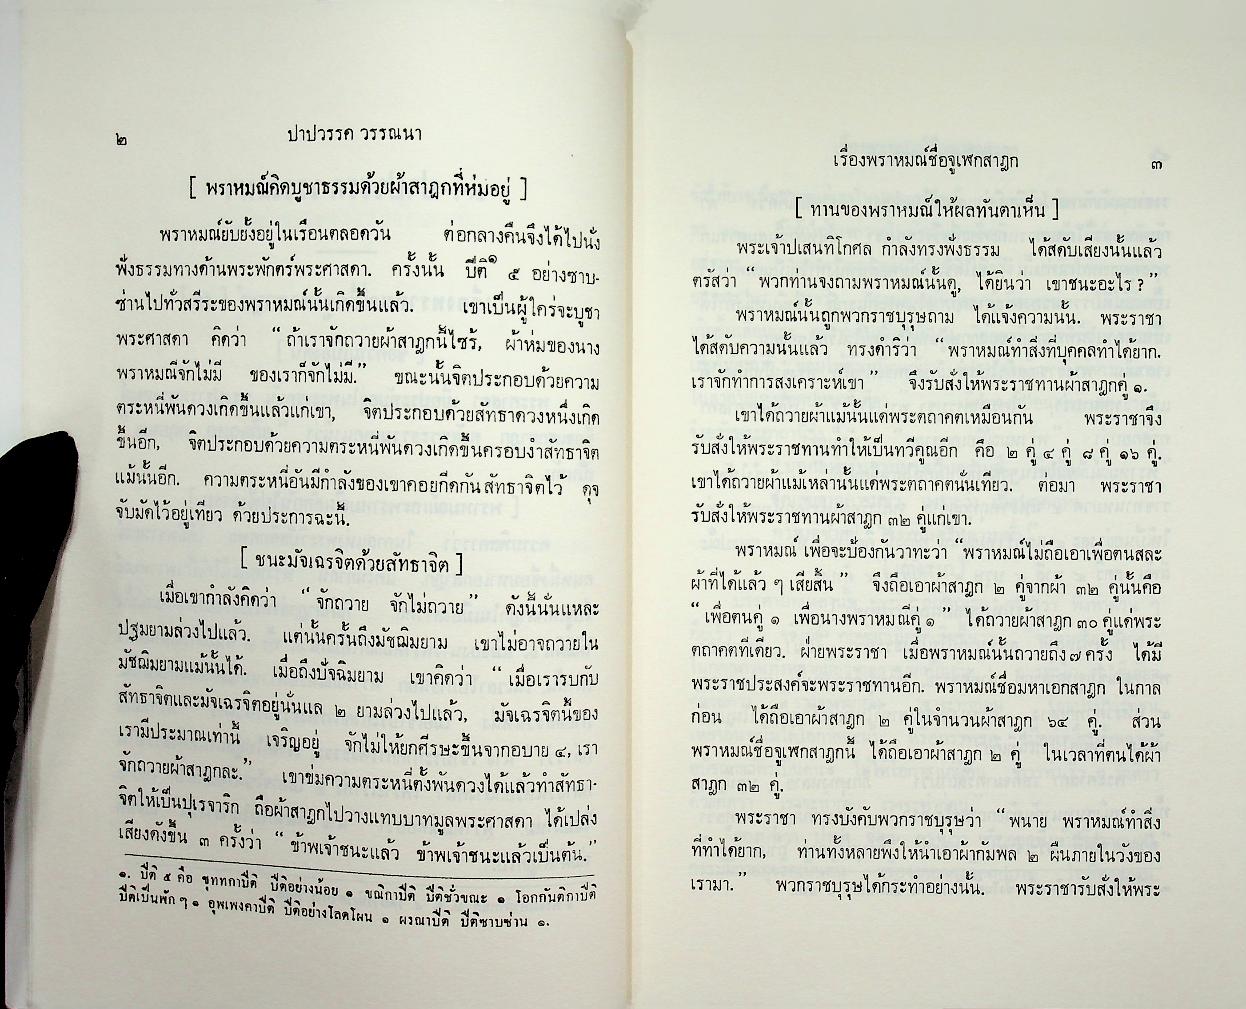 ๒
ปาปวรรค วรรณนา
[ พราหมณ์คิดบูชาธรรมด้วยผ้าสาฎกที่ห่มอยู่ ]
พราหมณ์ยับยั้งอยู่ในเรือนตลอดวัน ต่อกลางคืนจึงได้ไปนั่ง
ฟังธรรมทางด้านพระพักตร์พระศาสดา. ครั้งนั้น ปีติ๑ ๕ อย่างซาบ-
ซ่านไปทั่วสรีระของพราหมณ์นั้นเกิดขึ้นแล้ว. เขาเป็นผู้ใคร่จะบูชา
พระศาสดา คิดว่า “ ถ้าเราจักถวายผ้าสาฎกนี้ไซร้, ผ้าห่มของนาง
พราหมณีจักไม่มี ของเราก็จักไม่มี.” ขณะนั้นจิตประกอบด้วยความ
ตระหนี่พันดวงเกิดขึ้นแล้วแก่เขา, จิตประกอบด้วยสัทธาดวงหนึ่งเกิด
ขึ้นอีก, จิตประกอบด้วยความตระหนี่พันดวงเกิดขึ้นครอบงำสัทธาจิต
แม้นั้นอีก. ความตระหนี่อันมีกำลังของเขาคอยกีดกันสัทธาจิตไว้ ดุจ
จับมัดไว้อยู่เทียว ด้วยประการฉะนี้.
[ ชนะมัจเฉรจิตด้วยสัทธาจิต ]
เมื่อเขากำลังคิดว่า “ จักถวาย จักไม่ถวาย ” ดังนี้นั่นแหละ
ปฐมยามล่วงไปแล้ว. แต่นั้นครั้นถึงมัชฌิมยาม เขาไม่อาจถวายใน
มัชฌิมยามแม้นั้นได้. เมื่อถึงปัจฉิมยาม เขาคิดว่า “ เมื่อเรารบกับ
สัทธาจิตและมัจเฉรจิตอยู่นั่นแล ๒ ยามล่วงไปแล้ว, มัจเฉรจิตนี้ของ
เรามีประมาณเท่านี้ เจริญอยู่ จักไม่ให้ยกศีรษะขึ้นจากอบาย ๔, เรา
จักถวายผ้าสาฎกละ.” เขาข่มความตระหนี่ตั้งพันดวงได้แล้วทำสัทธา-
จิตให้เป็นปุเรจาริก ถือผ้าสาฎกไปวางแทบบาทมูลพระศาสดา ได้เปล่ง
เสียงดังขึ้น ๓ ครั้งว่า “ ข้าพเจ้าชนะแล้ว ข้าพเจ้าชนะแล้วเป็นต้น.”
๑. ปีติ ๕ คือ ขุททกาปีติ ปีติอย่างน้อย ๑ ขณิกาปีติ ปีติชั่วขณะ ๑ โอกกันติกาปีติ
ปีติเป็นพัก ๆ ๑ อุพเพงคาปีติ ปีติอย่างโลดโผน ๑ ผรณาปีติ ปีติซาบซ่าน ๑.
เรื่องพราหมณ์ชื่อจูเฬกสาฎก
๓
[ ทานของพราหมณ์ให้ผลทันตาเห็น ]
พระเจ้าปเสนทิโกศล กำลังทรงฟังธรรม ได้สดับเสียงนั้นแล้ว
ตรัสว่า “ พวกท่านจงถามพราหมณ์นั้นดู, ได้ยินว่า เขาชนะอะไร ? ”
พราหมณ์นั้นถูกพวกราชบุรุษถาม ได้แจ้งความนั้น. พระราชา
ได้สดับความนั้นแล้ว ทรงดำริว่า “ พราหมณ์ทำสิ่งที่บุคคลทำได้ยาก.
เราจักทำการสงเคราะห์เขา ” จึงรับสั่งให้พระราชทานผ้าสาฎกคู่ ๑.
เขาได้ถวายผ้าแม้นั้นแด่พระตถาคตเหมือนกัน พระราชาจึง
รับสั่งให้พระราชทานทำให้เป็นทวีคูณอีก คือ ๒ คู่ ๔ คู่ ๘ คู่ ๑๖ คู่.
เขาได้ถวายผ้าแม้เหล่านั้นแด่พระตถาคตนั่นเทียว. ต่อมา พระราชา
รับสั่งให้พระราชทานผ้าสาฎก ๓๒ คู่แก่เขา.
พราหมณ์ เพื่อจะป้องกันวาทะว่า “ พราหมณ์ไม่ถือเอาเพื่อตนสละ
ผ้าที่ได้แล้ว ๆ เสียสิ้น ” จึงถือเอาผ้าสาฎก ๒ คู่จากผ้า ๓๒ คู่นั้นคือ
“ เพื่อตนคู่ ๑ เพื่อนางพราหมณีคู่ ๑ ” ได้ถวายผ้าสาฎก ๓๐ คู่แด่พระ
ตถาคตทีเดียว. ฝ่ายพระราชา เมื่อพราหมณ์นั้นถวายถึง ๗ ครั้ง ได้มี
พระราชประสงค์จะพระราชทานอีก. พราหมณ์ชื่อมหาเอกสาฎก ในกาล
ก่อน ได้ถือเอาผ้าสาฎก ๒ คู่ในจำนวนผ้าสาฎก ๖๔ คู่. ส่วน
พราหมณ์ชื่อจูเฬกสาฎกนี้ ได้ถือเอาผ้าสาฎก ๒ คู่ ในเวลาที่ตนได้ผ้า
สาฎก ๓๒ คู่.
พระราชา ทรงบังคับพวกราชบุรุษว่า “ พนาย พราหมณ์ทำสิ่ง
ที่ทำได้ยาก, ท่านทั้งหลายพึงให้นำเอาผ้ากัมพล ๒ ผืนภายในวังของ
เรามา.” พวกราชบุรุษได้กระทำอย่างนั้น. พระราชารับสั่งให้พระ